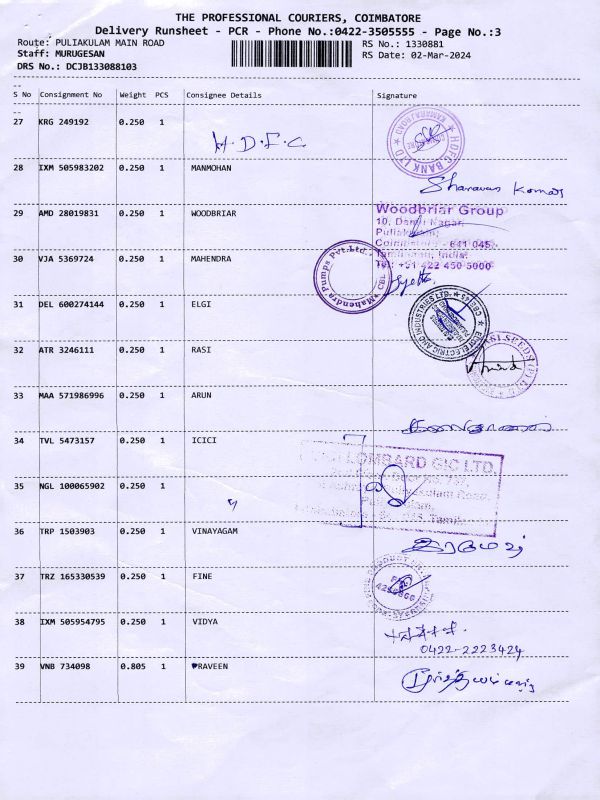 THE PROFESSIONAL COURIERS, COIMBATORE
Delivery Runsheet - PCR - Phone No.:0422-3505555 - Page No.:3
Route: PULIAKULAM MAIN ROAD
RS No.: 1330881
Staff: MURUGESAN
RS Date: 02-Mar-2024
DRS No.: DCJB133088103
S No Consignment No Weight PCS Consignee Details Signature
27 KRG 249192 0.250 1 H.D.F.C
HDFC BANK LTD KAMRAJ ROAD
28 IXM 505983202 0.250 1 MANMOHAN
Sharavan Kumar
29 AMD 28019831 0.250 1 WOODBRIAR
Woodbriar Group
10, Damu Nagar,
Puliakulam,
Coimbatore - 641 045.
Tamilnadu, India.
Tel: +91 422 450 5000
30 VJA 5369724 0.250 1 MAHENDRA
Mahendra Pumps Pvt.Ltd. CBE
31 DEL 600274144 0.250 1 ELGI
ELGI ELECTRIC AND INDUSTRIES LTD.
32 ATR 3246111 0.250 1 RASI
RASI SEEDS (P) LTD
Anind
33 MAA 571986996 0.250 1 ARUN
34 TVL 5473157 0.250 1 ICICI
LOMBARD GIC LTD.
35 NGL 100065902 0.250 1 "
36 TRP 1503903 0.250 1 VINAYAGAM
37 TRZ 165330539 0.250 1 FINE
38 IXM 505954795 0.250 1 VIDYA
0422-2223424
39 VNB 734098 0.805 1 PRAVEEN